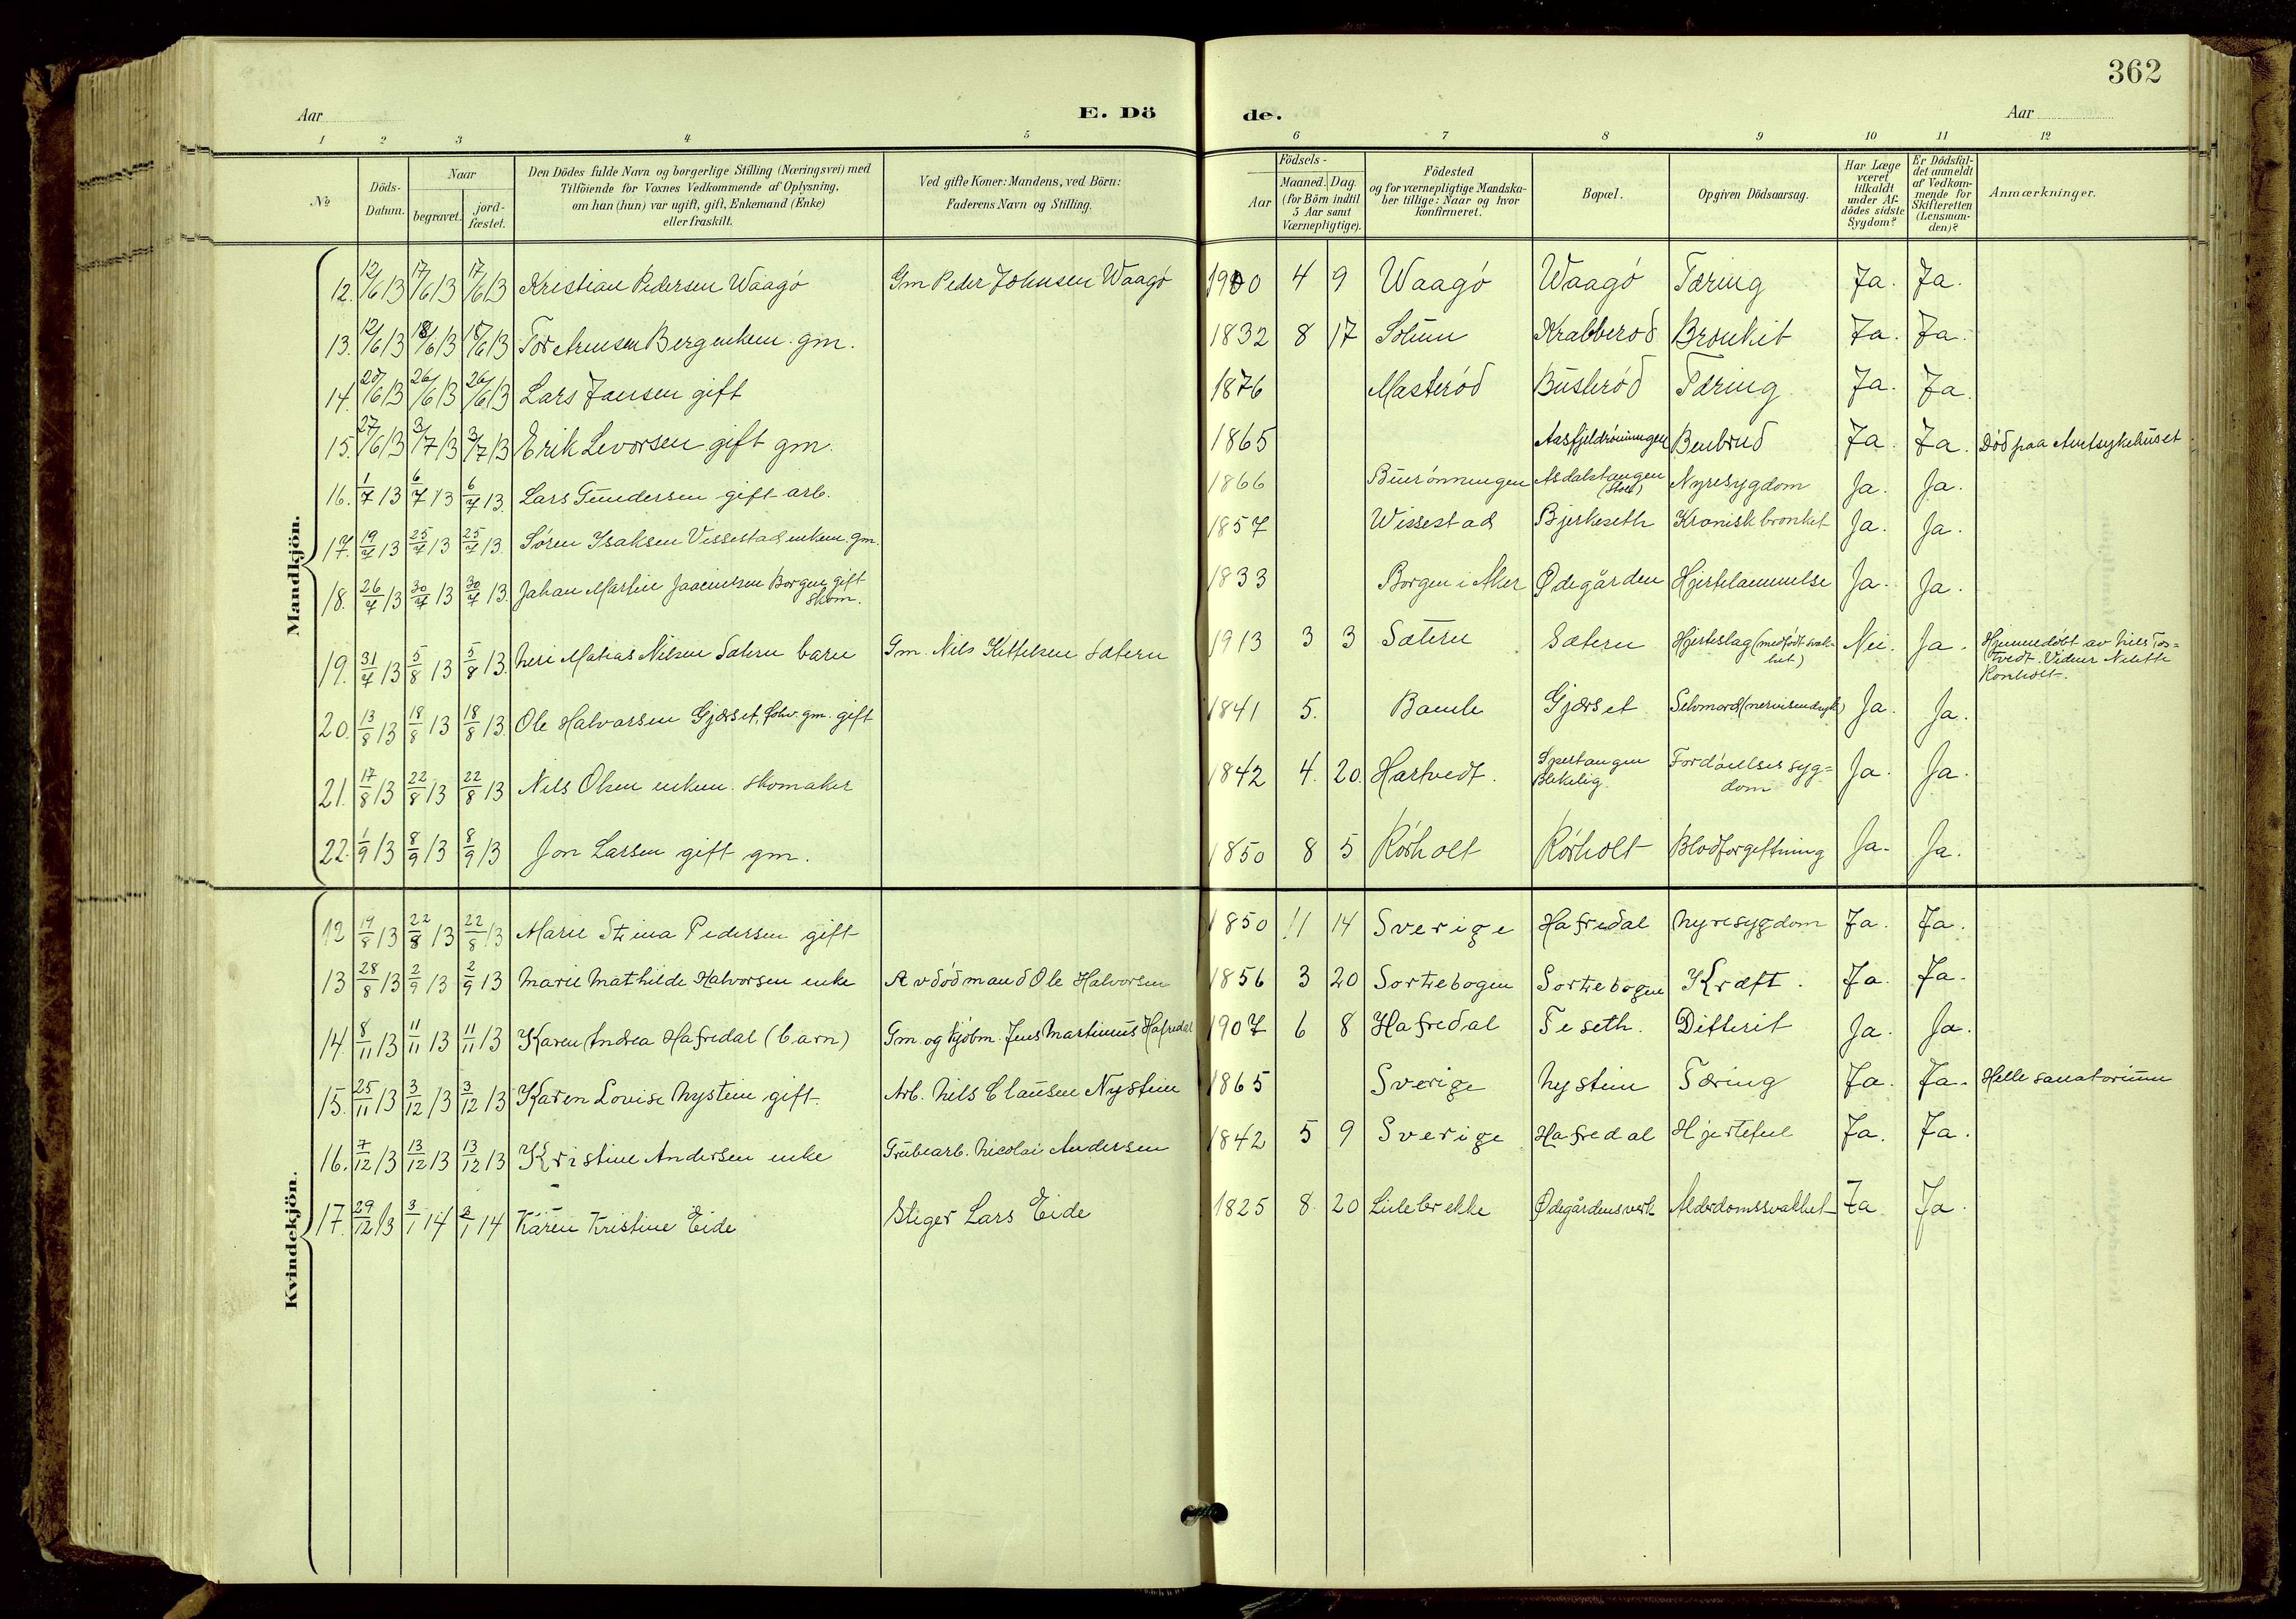 362
Aar E. Dö de. Aar
1 2 3 4 5 6 7 8 9 10 11 12
No
Döds-Datum.
Naar
begravet.
jord-fæstet.
Den Dödes fulde Navn og borgerlige Stilling (Næringsvei) med
Tilföiende for Voxnes Vedkommende af Oplysning,
om han (hun) var ugift, gift, Enkemand (Enke)
eller fraskilt.
Ved gifte Koner: Mandens, ved Börn:
Faderens Navn og Stilling.
Födsels-
Aar
Maaned. Dag.
(for Börn indtil
5 Aar samt
Værnepligtige).
Födested
og for værnepligtige Mandska-
ber tillige: Naar og hvor
konfirmeret.
Bopæl.
Opgiven Dödsaarsag.
Har Læge
været
tilkaldt
under Af-
dödes sidste
Sygdom?
Er Dödsfal-
det anmeldt
af Vedkom-
mende for
Skifteretten
(Lensman-
den)?
Anmærkninger.
Mandkjön.
12. 12/6 13 17/6 13 17/6 13 Kristian Pedersen Waagö Gm Peder Johnsen Waagö 1900 4 9 Waagö Waagö Tæring Ja. Ja.
13. 12/6 13 18/6 13 18/6 13 Tor Bergenkem. gm. 1832 8 17 Solum Krabberød Bronkit Ja. Ja.
14. 20/6 13 26/6 13 26/6 13 Lars Jansen gift 1876 Masterød Busterød Tæring Ja. Ja.
15. 27/6 13 3/7 13 3/7 13 Erik Levorsen gift gm. 1865 Aasfjeldrönningen Benbrud Ja. Ja. Död paa Amtsykehuset
16. 1/7 13 6/7 13 6/7 13. Lars Gundersen gift arb. 1866 Buurönningen Asdalstangen Nyresygdom Ja. Ja.
17. 19/7 13 25/7 13 25/7 13. Søren Isaksen Vissestad enkem. gm. 1857 Wissestad Bjerkeseth Kronisk bronket Ja. Ja.
18. 26/7 13 30/7 13 30/7 13. Johan Martin Borgen gift
skom. 1833 Borgen i Aker Ødegården Hjertelammelse Ja. Ja.
19. 31/7 13 5/8 13 5/8 13. Matias Nilsen Sætern barn Gm. Nils Kittelsen Sætern 1913 3 3 Sætern Sætern Hjerteslag (medfödt svak-
het) Nei. Ja. Hjemmedöbt av Niels Tos-
tvedt. Vidner
20. 13/8 13 18/8 13 18/8 13. Ole Halvorsen Gjerset, gm. gift 1841 5. Bamle Gjerset Selvmord Ja. Ja.
21. 17/8 13 22/8 13 22/8 13 Nils Olsen enkem. skomaker 1842 4. 20. Hartvedt. Fordöielsessyg=
dom Ja. Ja.
22. 1/9 13 8/9 13 8/9 13 Jon Larsen gift gm. 1850 8 5 Rörholt Rörholt Blodforgiftning Ja. Ja.
Kvindekjön.
12 19/8 13 22/8 13 22/8 13 Marie Stina Pedersen gift 1850 11 14 Sverige Hafredal Nyresygdom Ja. Ja.
13 28/8 13 2/9 13 2/9 13 Marie Mathilde Halvorsen enke Avdöd mand Ole Halvorsen 1856 3 20 Sortebogen Sortebogen Kræft. Ja. Ja.
14. 8/11 13 11/11 13 11/11 13 Karen Andrea Hafredal (barn) Gm. og kjöbm. Jens Martinius Hafredal 1907 6 8 Hafredal Feseth. Difterit Ja. Ja.
15. 25/11 13 3/12 13 3/12 13 Karen Lovise Nystein gift. Arb. Nils Clausen Nystein 1865 Sverige Nystein Tæring Ja. Ja. Helle sanatorium
16. 7/12 13 13/12 13 13/12 13 Kristine Andersen enke Grubearb. Nicolai Andersen 1842 5 9 Sverige Hafredal Hjertefeil Ja. Ja.
17. 29/12 13 3/1 14 3/1 14 Karen Kristine Eide Stiger Lars Eide 1825 8 20 Lillebrekke Ødegårdensverk Alderdomssvakhet Ja Ja.